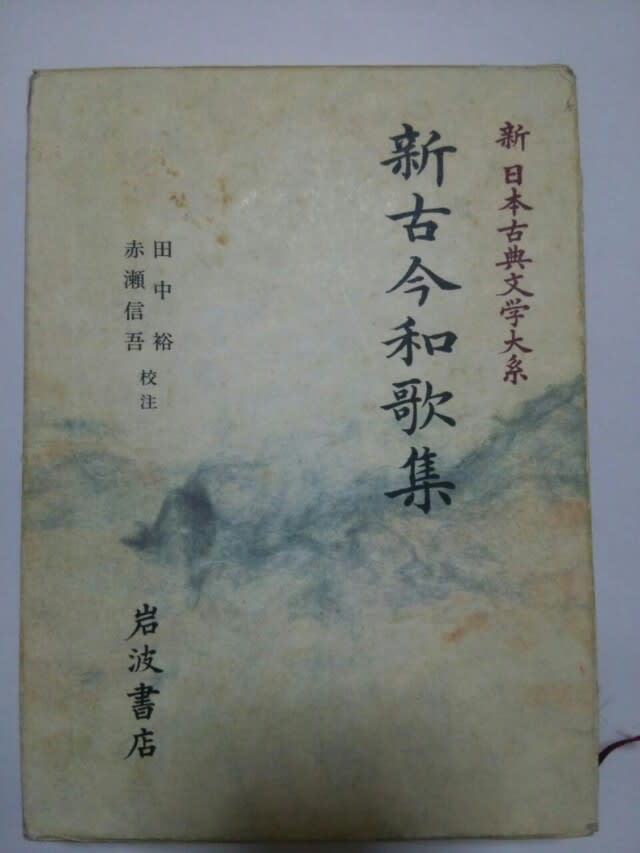 新 日本古典文学大系
新古今和歌集
田中 裕
赤瀬信吾
校注
岩波書店